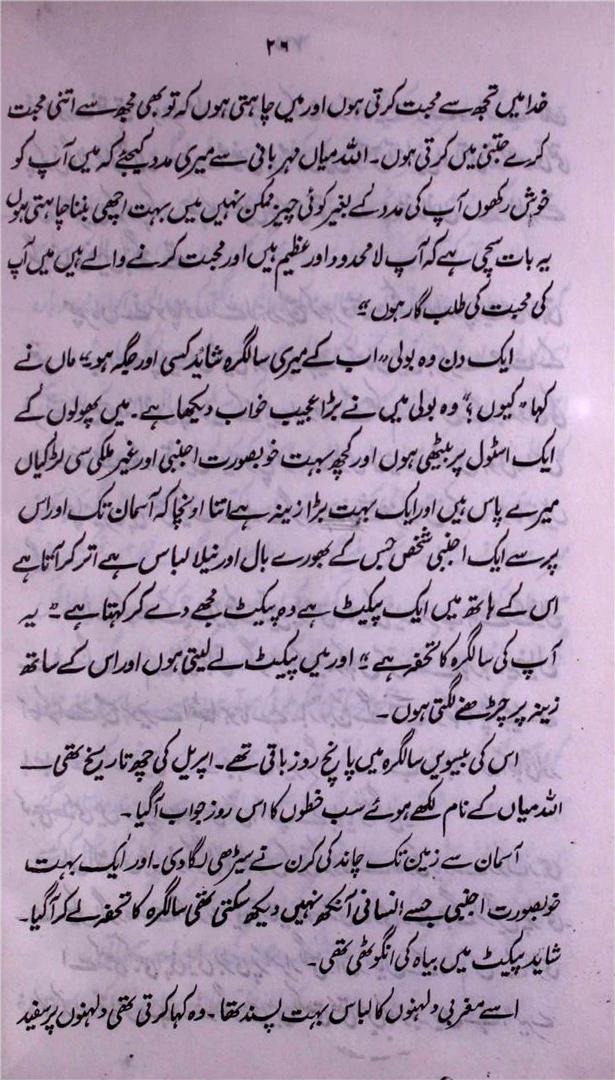 ۲۶
خدا میں تجھ سے محبت کرتی ہوں اور میں چاہتی ہوں کہ تو بھی مجھ سے اتنی محبت
کرے جتنی میں کرتی ہوں۔ اللہ میاں مہربانی سے میری مدد کیجیئے کہ میں آپ کو
خوش رکھوں آپ کی مدد کے بغیر کوئی چیز ممکن نہیں میں بہت اچھی بننا چاہتی ہوں
یہ بات سچی ہے کہ آپ لامحدود اور عظیم ہیں اور محبت کرنے والے ہیں میں آپ
کی محبت کی طلب گار ہوں"
ایک دن وہ بولی "اب کے میری سالگرہ شاید کسی اور جگہ ہو" ماں نے
کہا "کیوں؟" وہ بولی میں نے بڑا عجیب خواب دیکھا ہے۔ میں پھولوں کے
ایک اسٹول پر بیٹھی ہوں اور کچھ بہت خوبصورت اجنبی اور غیر ملکی سی لڑکیاں
میرے پاس ہیں اور ایک بہت بڑا زینہ ہے اتنا اونچا کہ آسمان تک اور اس
پر سے ایک اجنبی شخص جس کے بھورے بال اور نیلا لباس ہے اتر کر آتا ہے
اس کے ہاتھ میں ایک پیکیٹ ہے وہ پیکیٹ مجھے دے کر کہتا ہے۔ "یہ
آپ کی سالگرہ کا تحفہ ہے" اور میں پیکیٹ لے لیتی ہوں اور اس کے ساتھ
زینہ پر چڑھنے لگتی ہوں۔
اس کی بیسویں سالگرہ میں پانچ روز باقی تھے۔ اپریل کی چھ تاریخ تھی —
اللہ میاں کے نام لکھے ہوئے سب خطوں کا اس روز جواب آگیا۔
آسمان سے زمین تک چاند کی کرن نے سیڑھی لگا دی۔ اور ایک بہت
خوبصورت اجنبی جسے انسانی آنکھ نہیں دیکھ سکتی تھی سالگرہ کا تحفہ لے کر آگیا۔
شاید پیکیٹ میں بیاہ کی انگوٹھی تھی۔
اسے مغربی دلہنوں کا لباس بہت پسند تھا۔ وہ کہا کرتی تھی دلہنوں پر سفید